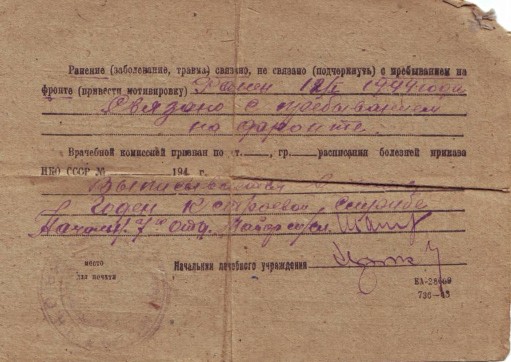 Ранение (заболевание, травма) связано, не связано (подчеркнуть) с пребыванием на
фронте (привести мотивировку) Ранен 12/I 1944 года
Связано с пребыванием
на фронте.
Врачебной комиссией признан по ст. , гр. расписания болезней приказа
НКО СССР № 194 г.
Выписывается
Годен к строевой службе
Начальн. 7го отд. Майор м/сл.
место
для печати
Начальник лечебного учреждения